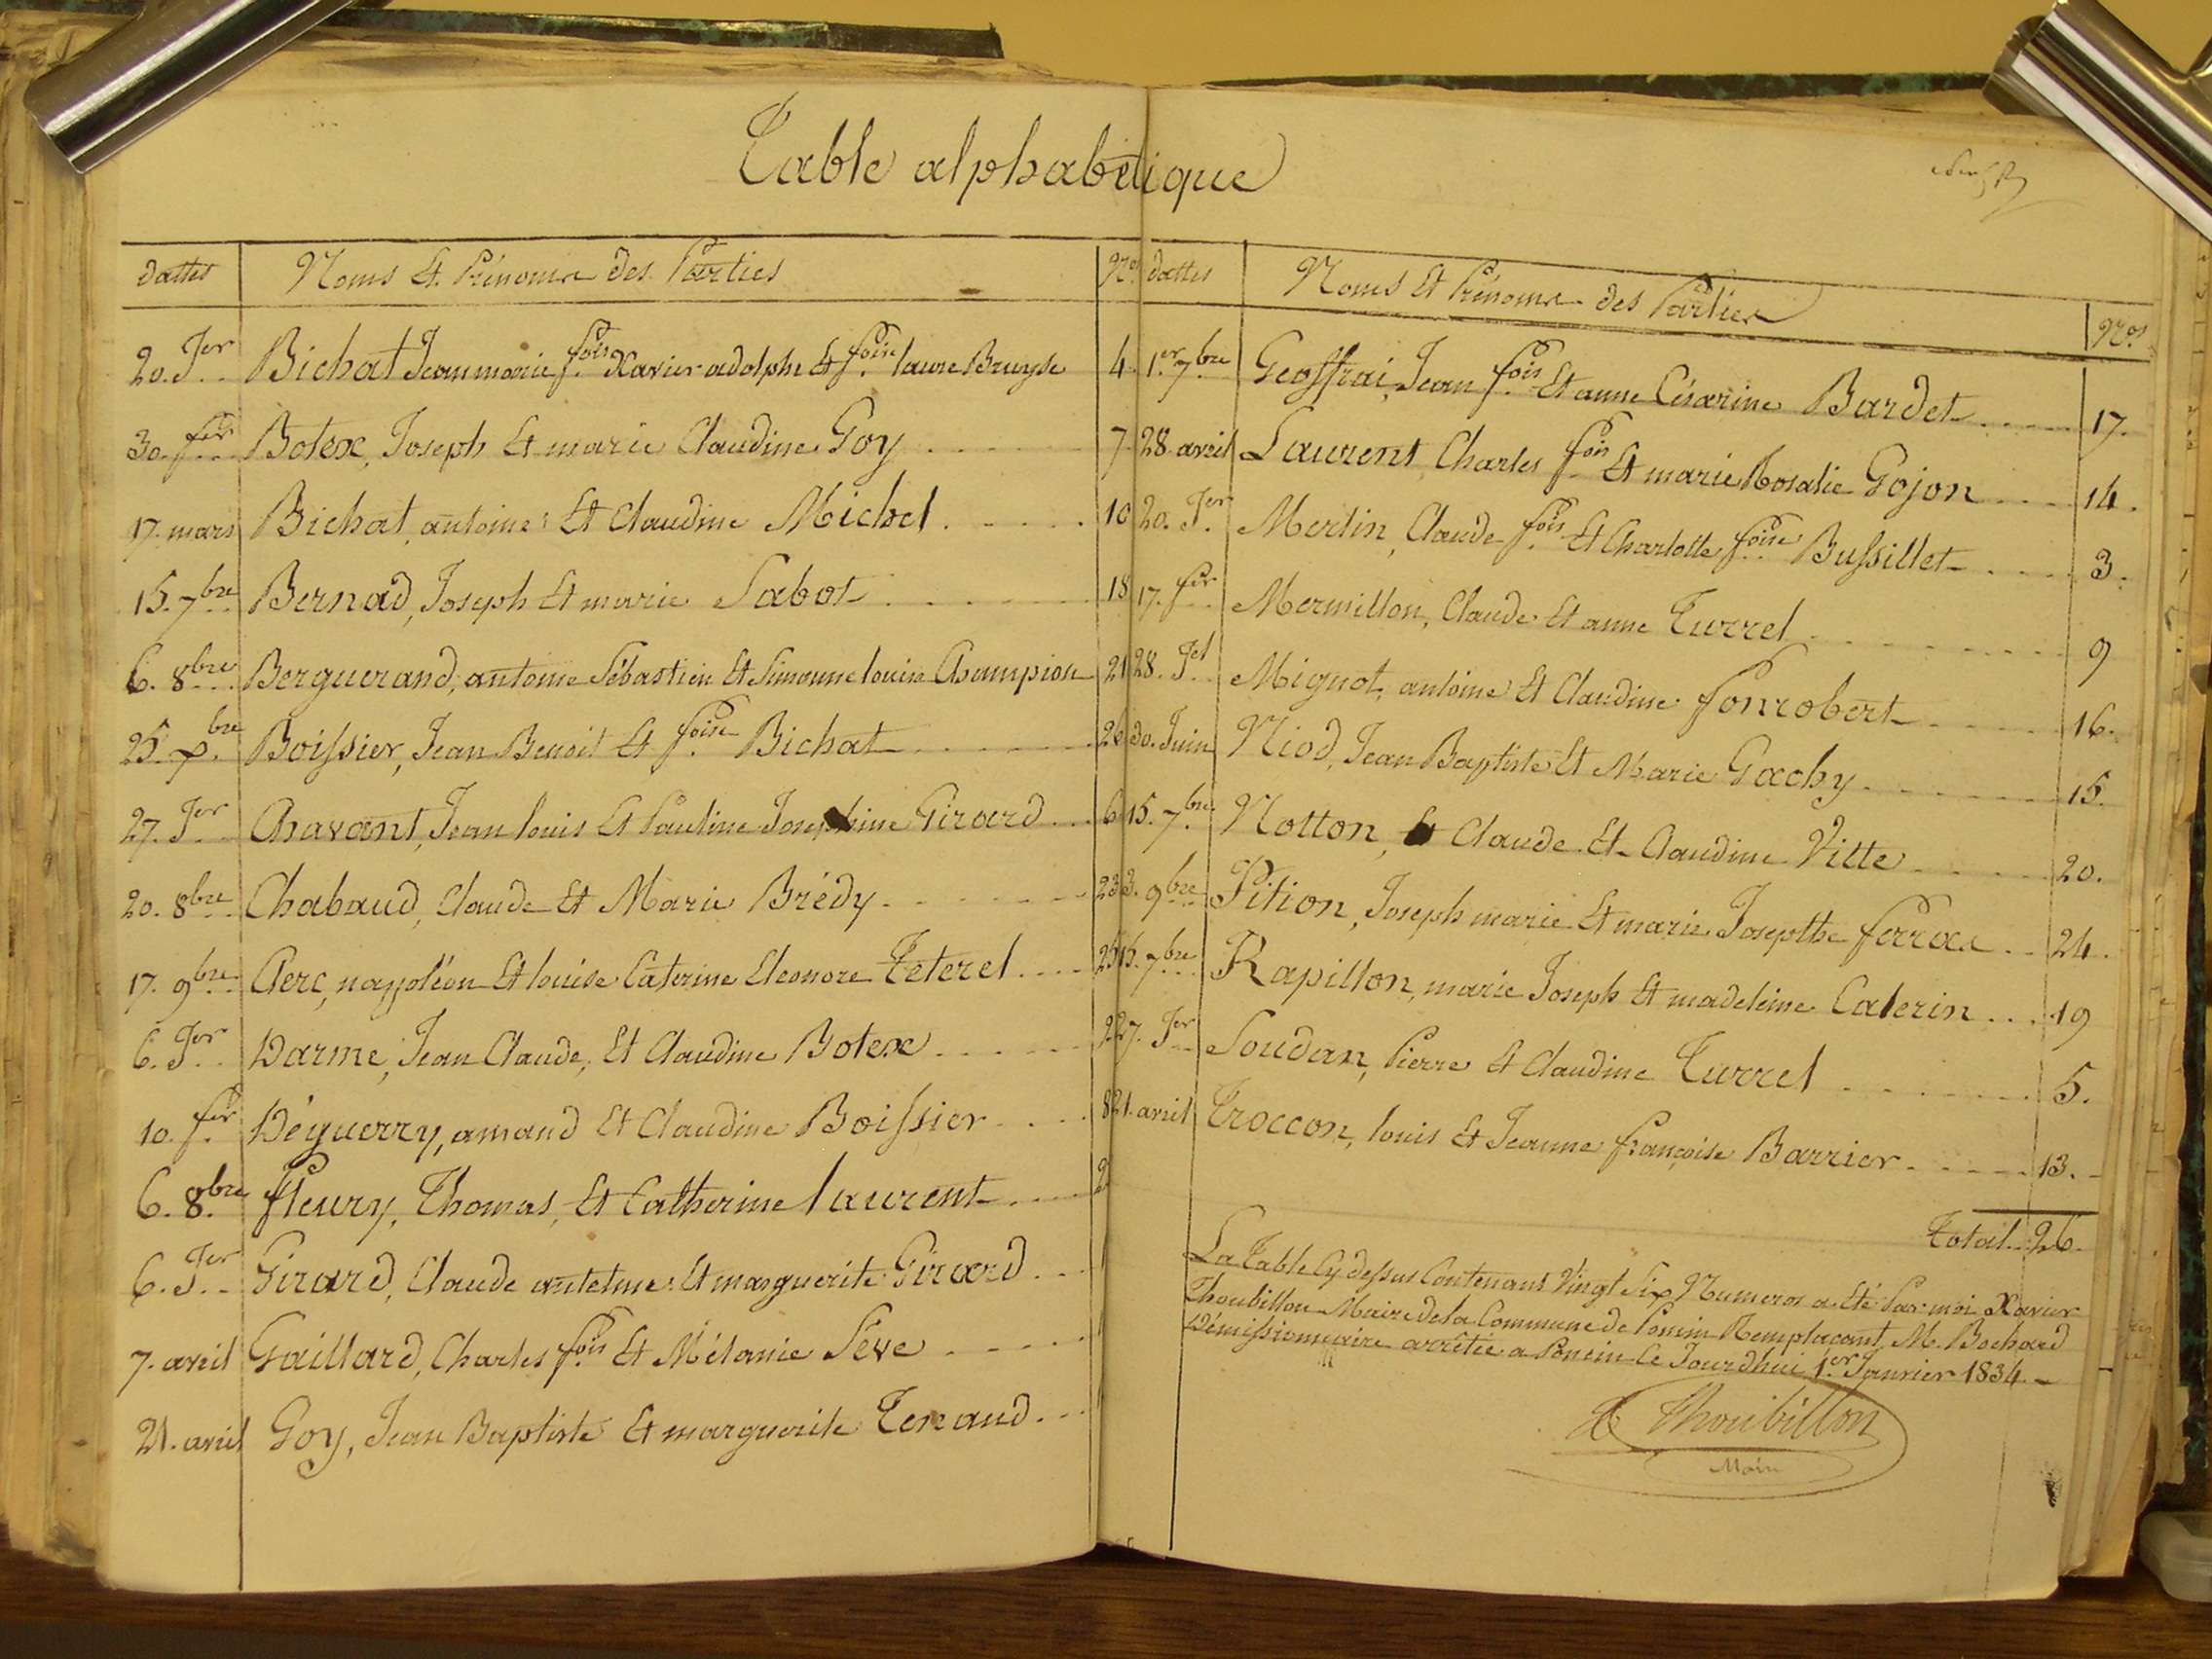 Table alphabétique
dattes Noms Et Prénoms des Parties Nos
20. Jer Bichat Jean marie fois Xavier adolphe Et foise laure Bruyse 4
30. fer Botex, Joseph Et marie Claudine Goy 7
17. mars Bichat, antoine Et Claudine Michel 10
15. 7bre Bernad, Joseph Et marie Sabot 18
6. 8bre Berguerand, antoine Sébastien Et Simonne louise Champion 21
25. Xbre Boissier, Jean Benoit Et foise Bichat 26
27. Jer Chavant, Jean louis Et Pauline Josephine Girard 6
20. 8bre Chabaud, Claude Et Marie Brédy 23
17. 9bre Clerc, nappoléon Et louise Caterine Eleonore Teterel 25
6. Jer Darme, Jean Claude, Et Claudine Botex 2
10. fer Déguerry, amand Et Claudine Boissier 8
6. 8bre fleury, Thomas, Et Catherine laurent 2
6. Jer Girard, Claude antelme Et marguerite Girard
7. avril Gaillard, Charles fois Et Mélanie Séve
21. avril Goy, Jean Baptiste Et marguerite Tenaud
dattes Noms Et Prénoms des Parties Nos
1er 7bre Geoffrai, Jean fois Et anne Césarine Bardet 17.
28. avril Laurent, Charles fois Et marie Rosalie Gojon 14.
20. Jer Merlin, Claude fois Et Charlotte foise Bussillet 3.
17. fer Mermillon, Claude Et anne Turrel 9
28. Jet Mignot, antoine Et Claudine fonrobert 16.
30. Juin Niod, Jean Baptiste Et Marie Gachy 15.
15. 7bre Notton, Claude Et Claudine Vitte 20.
3. 9bre Pition, Joseph marie Et marie Josepthe ferrox 24.
15. 7bre Rapillon, marie Joseph Et madeleine Caterin 19
27. Jer Soudan, Pierre Et Claudine Turrel 5.
21. avril Troccon, louis Et Jeanne françoise Barrier 13.
Total 26.
La Table Cy dessus Contenant Vingt Six Numeros a Eté Par moi Xavier
Thoubillon Maire de la Commune de Poncin Remplaçant M. Bochard
Démissionnaire arrêtée a Poncin Ce Jourdhui 1er Janvier 1834.
X Thoubillon
Maire